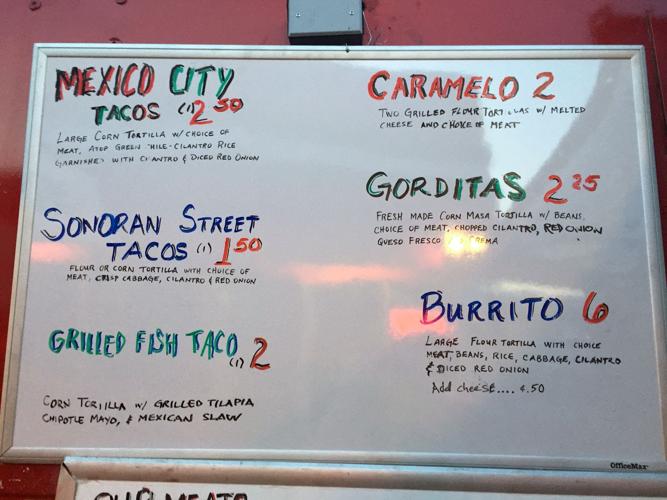 MEXICO CITY
TACOS (1) 2 50
LARGE CORN TORTILLA W/ CHOICE OF
MEAT, ATOP GREEN CHILE-CILANTRO RICE
GARNISHED WITH CILANTRO & DICED RED ONION
SONORAN STREET
TACOS (1) 1 50
FLOUR OR CORN TORTILLA WITH CHOICE OF
MEAT, CRISP CABBAGE, CILANTRO & RED ONION
GRILLED FISH TACO (1) 2
CORN TORTILLA W/ GRILLED TILAPIA
CHIPOTLE MAYO, & MEXICAN SLAW
CARAMELO 2
TWO GRILLED FLOUR TORTILLAS W/ MELTED
CHEESE AND CHOICE OF MEAT
GORDITAS 2 25
FRESH MADE CORN MASA TORTILLA W/ BEANS,
CHOICE OF MEAT, CHOPPED CILANTRO, RED ONION
QUESO FRESCO CREMA
BURRITO 6
LARGE FLOUR TORTILLA WITH CHOICE
MEAT, BEANS, RICE, CABBAGE, CILANTRO
& DICED RED ONION
Add cheese.... ¢.50
OfficeMax
OUR MEATS